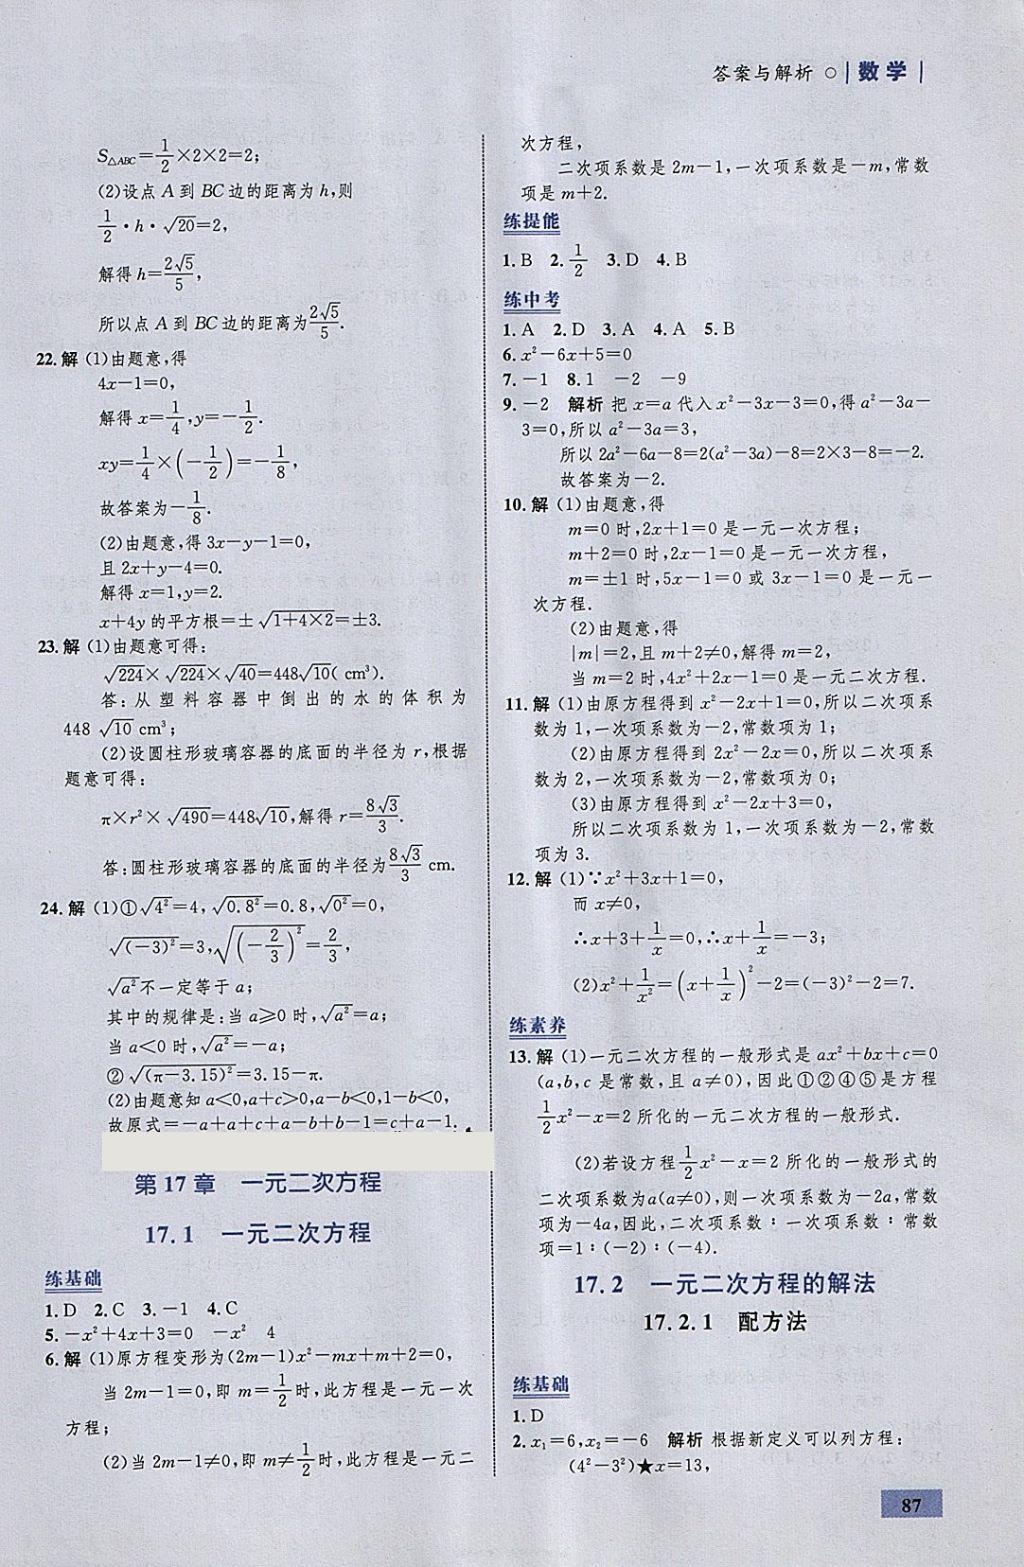 答案与解析 ○ | 数学 |
S△ABC=1/2×2×2=2;
(2)设点A到BC边的距离为h,则
1/2·h·√20=2,
解得h=2√5/5,
所以点A到BC边的距离为2√5/5.
22.解 (1)由题意,得
4x-1=0,
解得x=1/4,y=-1/2.
xy=1/4×(-1/2)=-1/8,
故答案为-1/8.
(2)由题意,得3x-y-1=0,
且2x+y-4=0.
解得x=1,y=2.
x+4y的平方根=±√(1+4×2)=±3.
23.解 (1)由题意可得:
√224×√224×√40=448√10(cm³).
答:从塑料容器中倒出的水的体积为
448√10 cm³;
(2)设圆柱形玻璃容器的底面的半径为r,根据
题意可得:
π×r²×√490=448√10,解得r=8√3/3.
答:圆柱形玻璃容器的底面的半径为8√3/3 cm.
24.解 (1)①√4²=4,√0.8²=0.8,√0²=0,
√(-3)²=3,√(-2/3)²=2/3,
√a²不一定等于a;
其中的规律是:当a≥0时,√a²=a;
当a<0时,√a²=-a;
②√(π-3.15)²=3.15-π.
(2)由题意知a<0,a+c>0,a-b<0,1-b<0,
故原式=-a+a+c+a-b+b-1=c+a-1.
第17章 一元二次方程
17.1 一元二次方程
练基础
1.D 2.C 3.-1 4.C
5.-x²+4x+3=0 -x² 4
6.解 (1)原方程变形为(2m-1)x²-mx+m+2=0,
当2m-1=0,即m=1/2时,此方程是一元一次
方程;
(2)当2m-1≠0,即m≠1/2时,此方程是一元二
次方程,
二次项系数是2m-1,一次项系数是-m,常数
项是m+2.
练提能
1.B 2.1/2 3.D 4.B
练中考
1.A 2.D 3.A 4.A 5.B
6.x²-6x+5=0
7.-1 8.1 -2 -9
9.-2 解析 把x=a代入x²-3x-3=0,得a²-3a-
3=0,所以a²-3a=3,
所以2a²-6a-8=2(a²-3a)-8=2×3-8=-2.
故答案为-2.
10.解 (1)由题意,得
m=0时,2x+1=0是一元一次方程;
m+2=0时,2x-1=0是一元一次方程,
m=±1时,5x-1=0或3x-1=0是一元一
次方程.
(2)由题意,得
|m|=2,且m+2≠0,解得m=2,
当m=2时,4x²+2x-1=0是一元二次方程.
11.解 (1)由原方程得到x²-2x+1=0,所以二次项系
数为1,一次项系数为-2,常数项为1;
(2)由原方程得到2x²-2x=0,所以二次项系
数为2,一次项系数为-2,常数项为0;
(3)由原方程得到x²-2x+3=0,
所以二次项系数为1,一次项系数为-2,常数
项为3.
12.解 (1)∵x²+3x+1=0,
而x≠0,
∴x+3+1/x=0,∴x+1/x=-3;
(2)x²+1/x²=(x+1/x)²-2=(-3)²-2=7.
练素养
13.解 (1)一元二次方程的一般形式是ax²+bx+c=0
(a,b,c是常数,且a≠0),因此①②④⑤是方程
1/2x²-x=2所化的一元二次方程的一般形式.
(2)若设方程1/2x²-x=2所化的一般形式的
二次项系数为a(a≠0),则一次项系数为-2a,常数
项为-4a,因此,二次项系数∶一次项系数∶常数
项=1∶(-2)∶(-4).
17.2 一元二次方程的解法
17.2.1 配方法
练基础
1.D
2.x₁=6,x₂=-6 解析 根据新定义可以列方程:
(4²-3²)★x=13,
87